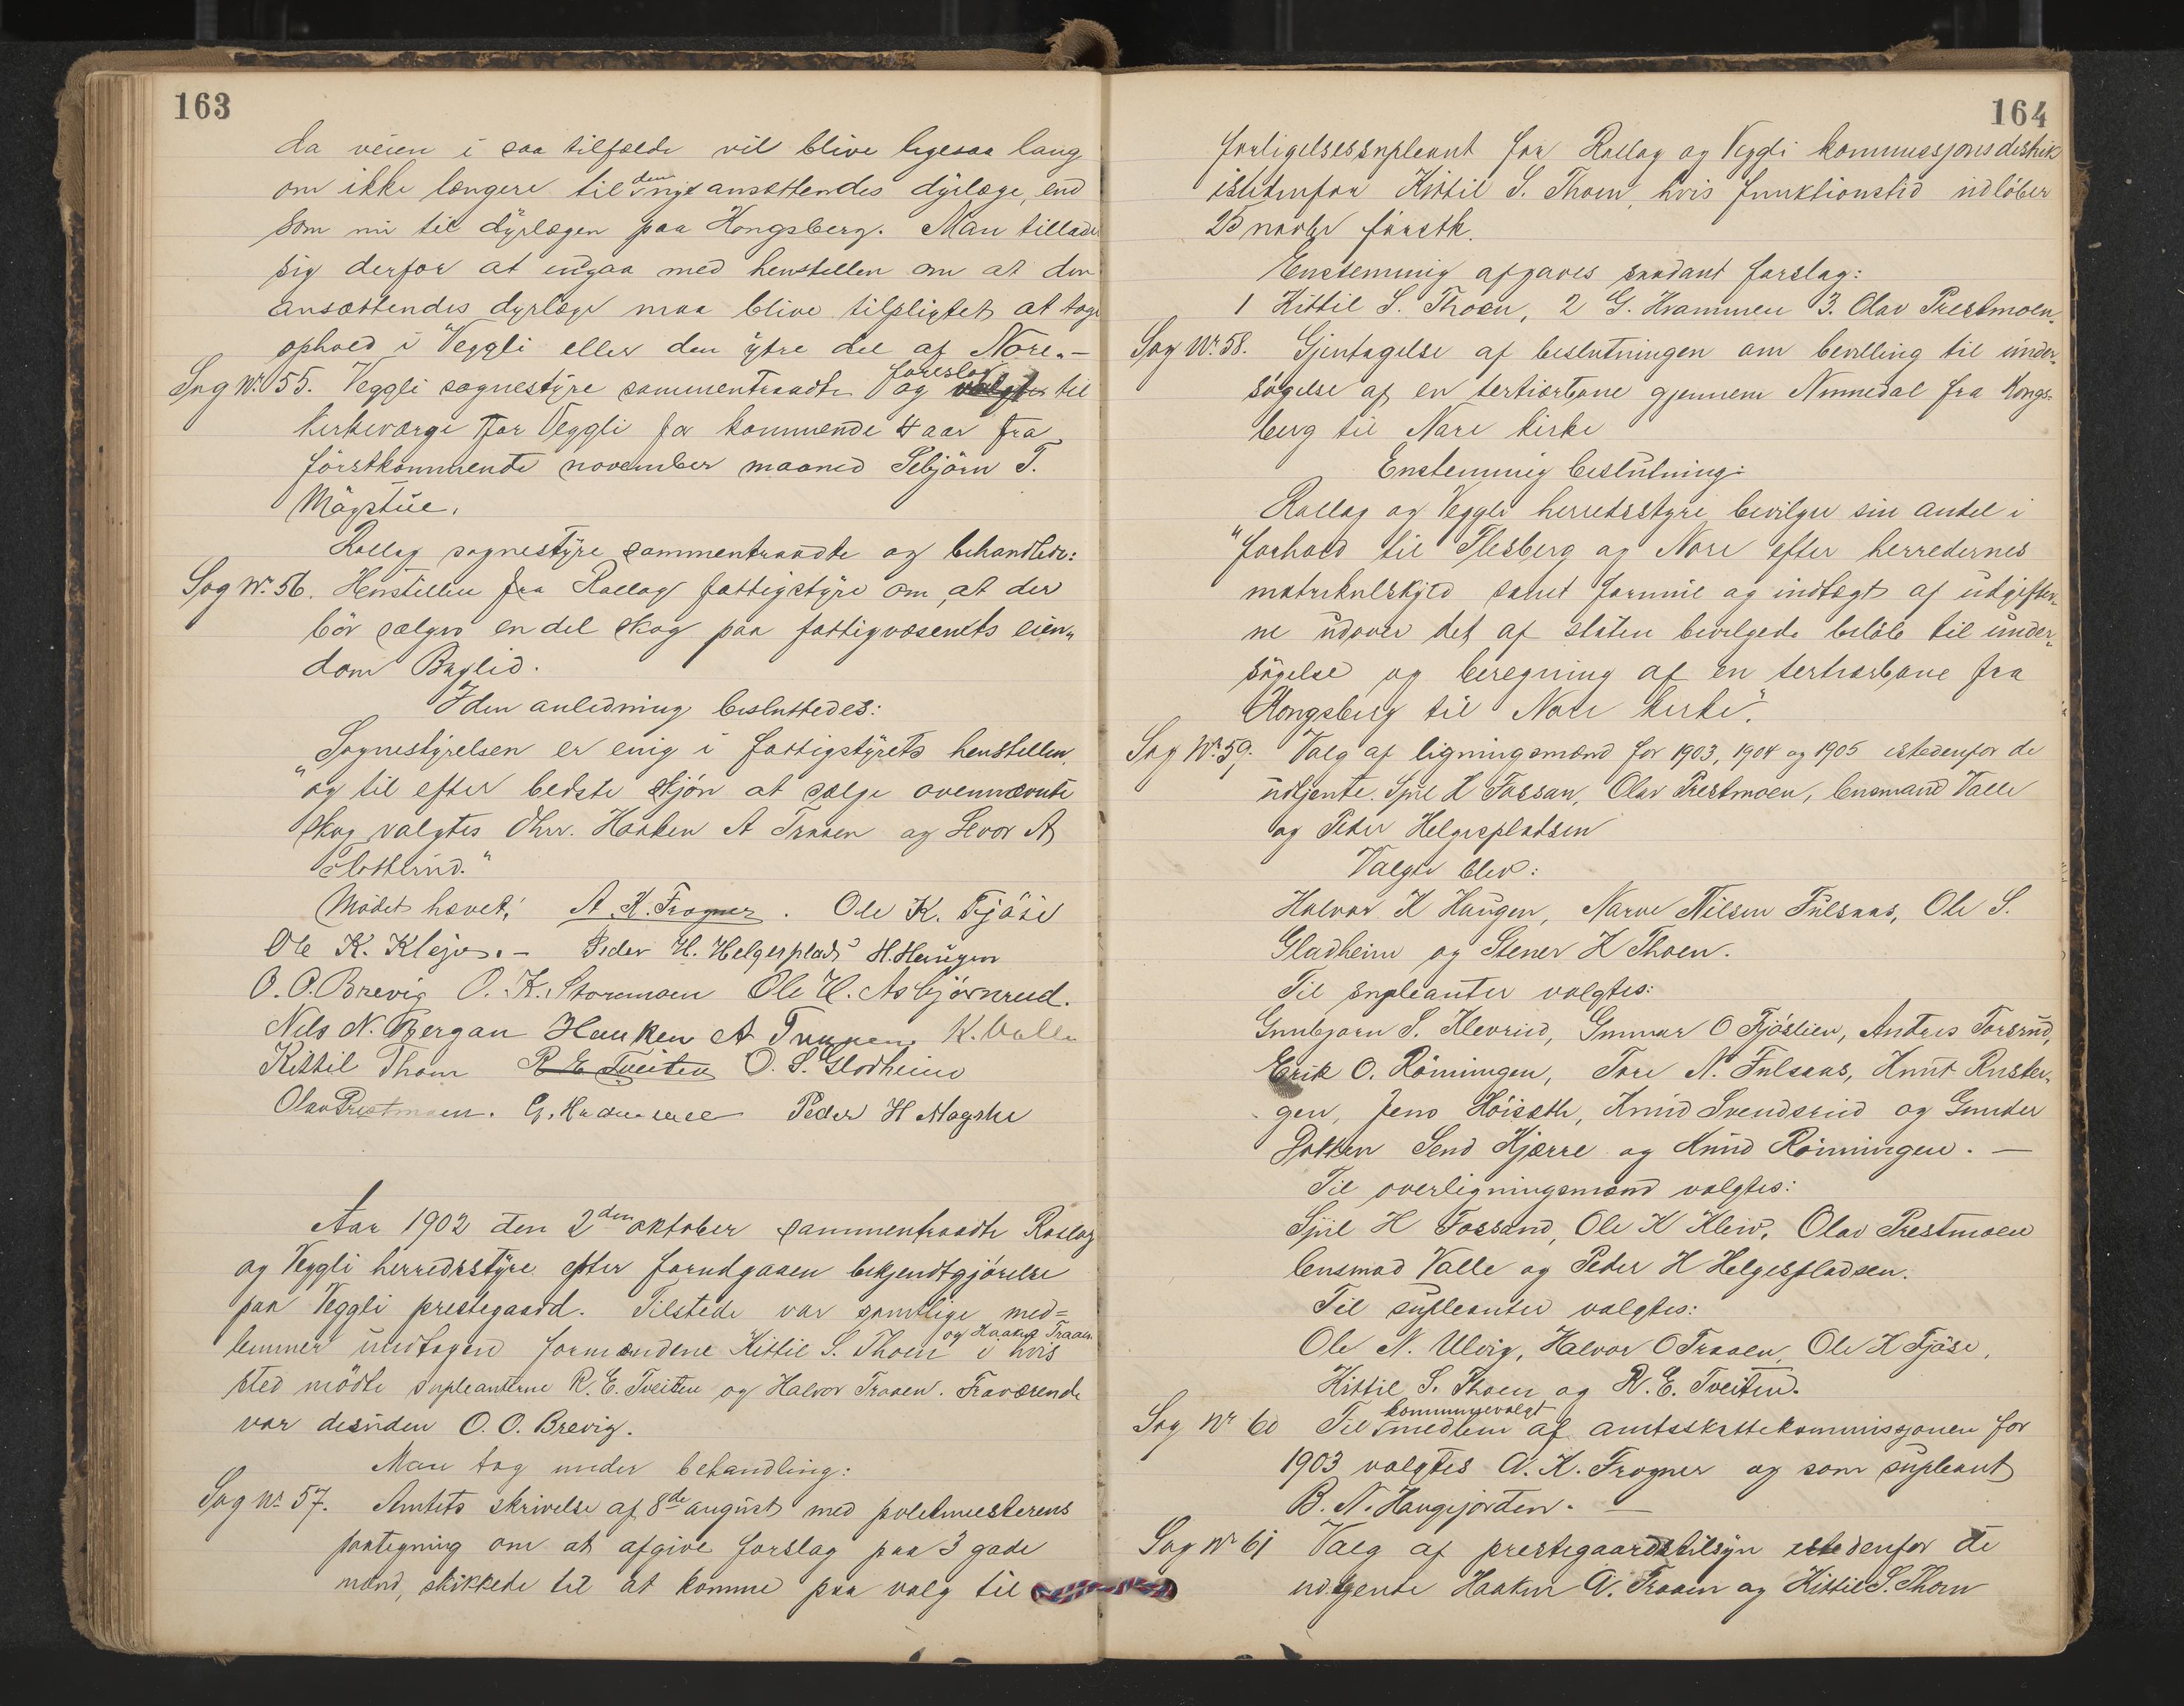 163
da veien i saa tilfælde vil blive ligesaa lang
om ikke længere til den nyt ansættendes dyrlæge, end
som nu til dyrlægen paa Kongsberg. Man tillader
sig derfor at indgaa med henstillen om at den
ansættendes dyrlæge maa blive tilpligtet at tage
ophold i Veggli eller den ytre del af Nore.-
Sag Nr. 55. Veggli sognestyre sammentraadte og foreslog valgte til
kirkeværge for Veggli for kommende 4 aar fra
förstkommende november maaned Sebjörn T.
Mögstue.
Rollag sognestyre sammentraadte og behandlede:
Sag Nr. 56. Henstillen fra Rollag fattigstyre om, at der
bör sælges en del skog paa fattigvæsenets eien„
dom Baglid.
I den anledning besluttedes:
Sognestyrelsen er enig i fattigstyrets henstillen,
„og til efter bedste skjön at sælge ovennævnte
skog valgtes Dhrr. Haaken A Traaen og Levor A
Slotterud."
Mödet hævet! A. K. Frogner. Ole K. Fjöse
Ole K. Klejv.- Peder H. Helgesplads H. Haugen
O. O. Brevig O. K. Stormoen Ole H. Asbjörnrud.
Nils N. Bergan Haaken A Traaen K. Valle
Kittil Thoen R E Tveiten O. S. Gladheim
Olav Prestmoen. G. Hvammen Peder H Mogstu
Aar 1902 den 2den oktober sammentraadte Rollag
og Veggli herredsstyre efter forudgaaen bekjendtgjörelse
paa Veggli prestegaard. Tilstede var samtlige med=
lemmer undtagen formændene Kittil S. Thoen og Haaken Traaen i hvis
sted mödte supleanterne R. E. Tveiten og Halvor Traaen. Fraværende
var desuden O. O. Brevig.
Man tog under behandling:
Sag Nr 57. Amtets skrivelse af 8de august med politmesterens
paategning om at afgive forslag paa 3 gode
mænd, skikkede til at komme paa valg til
164
forligelsessupleant for Rollag og Veggli kommissjonsdistrik
istedenfor Kittil S. Thoen, hvis funktionstid udlöber
25 novbr förstk.
Enstemmig afgaves saadant forslag:
1 Kittil S. Thoen, 2 G. Hvammen 3. Olav Prestmoen.
Sag Nr. 58. Gjentagelse af beslutningen om bevilling til under„
sögelse af en tertiærbane gjennem Nummedal fra Kongs=
berg til Nore kirke
Enstemmig beslutning:
Rollag og Veggli herredsstyre bevilger sin andel i
"forhold til Flesberg og Nore efter herredernes
matrikulskyld samt formue og indtægt af udgifter„
ne udover det af staten bevilgede belöb til under„
sögelse og beregning af en tertiærbane fra
Kongsberg til Nore kirke".
Sag Nr. 59. Valg af ligningsmænd for 1903, 1904 og 1905 istedenfor de
udtjente. Spil H Fossan, Olav Prestmoen, lensmand Valle
og Peder Helgespladsen
Valgte blev:
Halvor K Haugen, Narve Nilsen Fulsaas, Ole S.
Gladheim og Stener K Thoen.
Til supleanter valgtes:
Gunbjörn S. Klevrud, Gunnar O Fjöslien, Anders Torsrud,
Erik O. Rönningen, Tore N. Fulsaas, Knut Ruster„
gen, Jens Höiseth, Knud Svendsrud og Gunder
Bakken Send Kjærre og Knud Rönningen. —
Til overligningsmænd valgtes:
Spil H Fossand, Ole K Kleiv, Olav Prestmoen
lensmad Valle og Peder H Helgespladsen.
Til supleanter valgtes:
Ole N. Ulvig, Halvor O Traaen, Ole K Fjöse,
Kittil S. Thoen og R. E. Tveiten.
Sag Nr 60 Til kommunevalgt medlem af amtsskattekommissjonen for
1903 valgtes A. K. Frogner og som supleant
B. N. Haugejorden. —
Sag Nr 61 Valg af prestegaardstilsyn istedenfor de
udtjente Haaken A. Traaen og Kittil S. Thoen